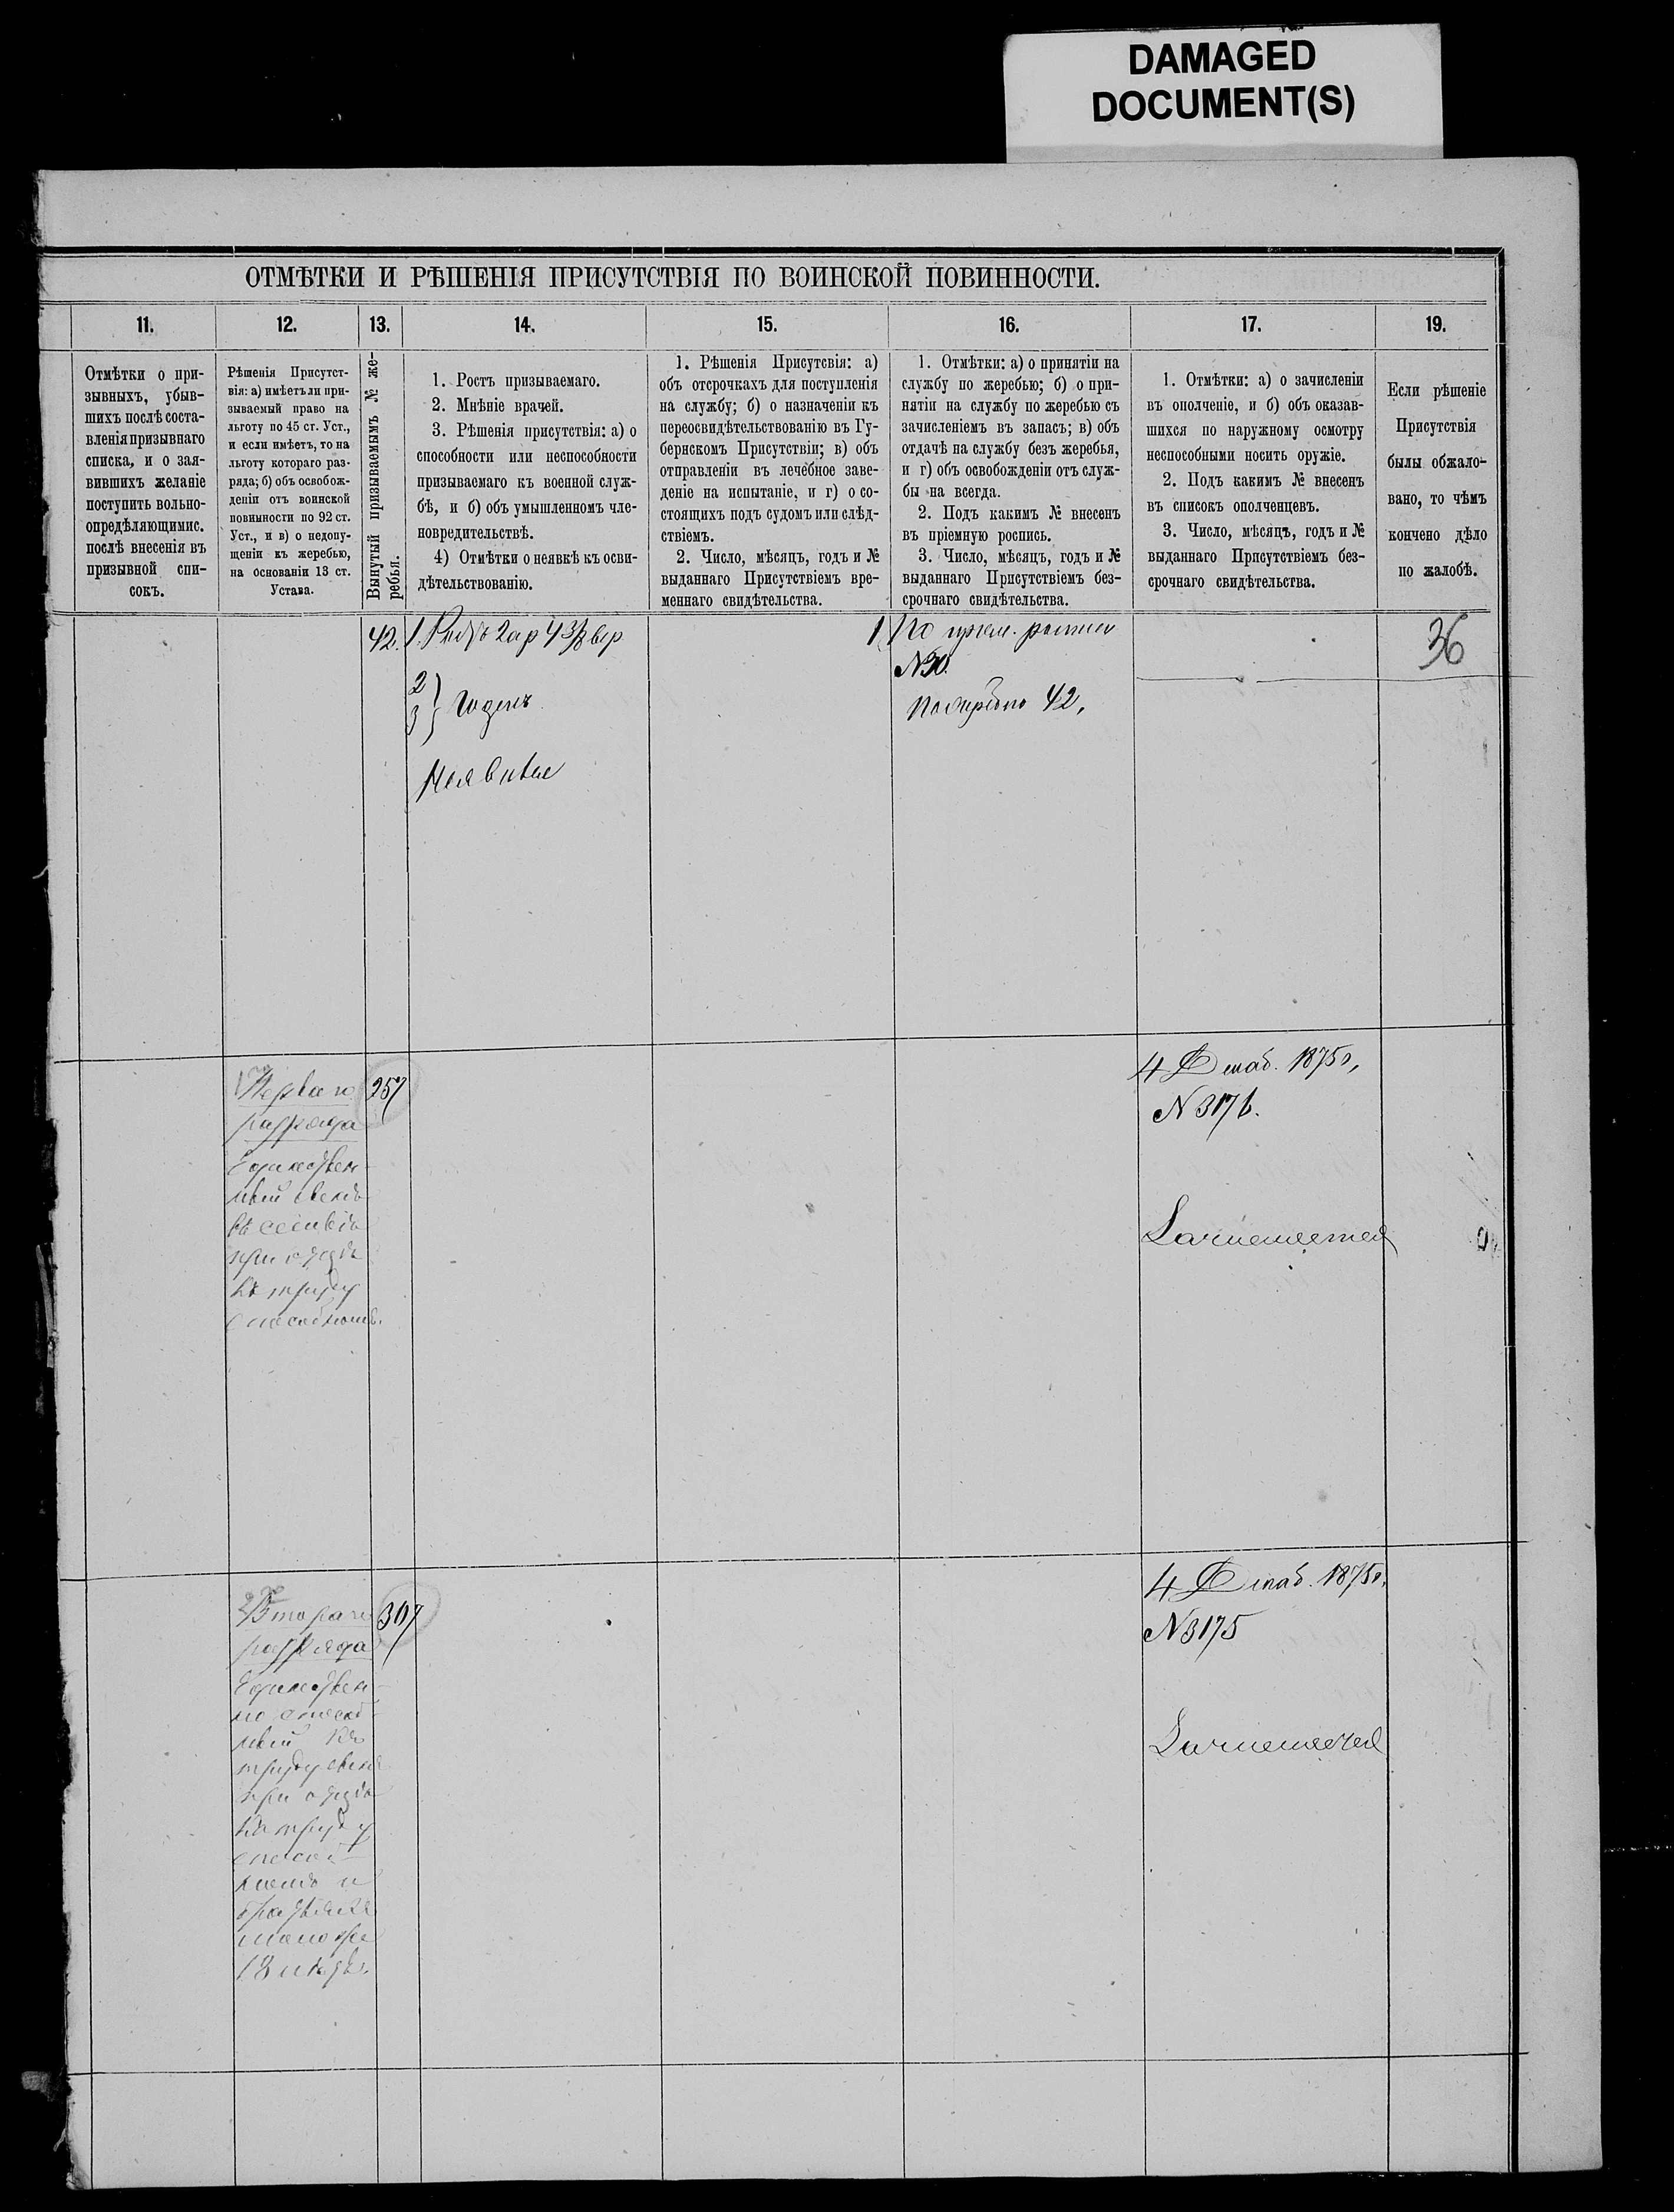 DAMAGED
DOCUMENT(S)
ОТМѢТКИ И РѢШЕНІЯ ПРИСУТСТВІЯ ПО ВОИНСКОЙ ПОВИННОСТИ.
11.
Отмѣтки о при-
зывныхъ, убыв-
шихъ послѣ соста-
вленія призывнаго
списка, и о зая-
вившихъ желаніе
поступить вольно-
опредѣляющимис.
послѣ внесенія въ
призывной спи-
сокъ.
12.
Рѣшенія Присутст-
вія: а) имѣетъ ли при-
зываемый право на
льготу по 45 ст. Уст.,
и если имѣетъ, то на
льготу котораго раз-
ряда; б) объ освобож-
деніи отъ воинской
повинности по 92 ст.
Уст., и в) о недопу-
щеніи къ жеребью,
на основаніи 13 ст.
Устава.
13.
Вынутый призываемымъ № же-
ребья.
14.
1. Ростъ призываемаго.
2. Мнѣніе врачей.
3. Рѣшенія присутствія: а) о
способности или неспособности
призываемаго къ военной служ-
бѣ, и б) объ умышленномъ чле-
новредительствѣ.
4) Отмѣтки о неявкѣ къ осви-
дѣтельствованію.
15.
1. Рѣшенія Присутсвія: а)
объ отсрочкахъ для поступленія
на службу; б) о назначеніи къ
переосвидѣтельствованію въ Гу-
бернскомъ Присутствіи; в) объ
отправленіи въ лечебное заве-
деніе на испытаніе, и г) о со-
стоящихъ подъ судомъ или слѣд-
ствіемъ.
2. Число, мѣсяцъ, годъ и №
выданнаго Присутствіемъ вре-
меннаго свидѣтельства.
16.
1. Отмѣтки: а) о принятіи на
службу по жеребью; б) о при-
нятіи на службу по жеребью съ
зачисленіемъ въ запасъ; в) объ
отдачѣ на службу безъ жеребья,
и г) объ освобожденіи отъ служ-
бы на всегда.
2. Подъ какимъ № внесенъ
въ пріемную роспись.
3. Число, мѣсяцъ, годъ и №
выданнаго Присутствіемъ без-
срочнаго свидѣтельства.
17.
1. Отмѣтки: а) о зачисленіи
въ ополченіе, и б) объ оказав-
шихся по наружному осмотру
неспособными носить оружіе.
2. Подъ какимъ № внесенъ
въ списокъ ополченцевъ.
3. Число, мѣсяцъ, годъ и №
выданнаго Присутствіемъ без-
срочнаго свидѣтельства.
19.
Если рѣшеніе
Присутствія
былы обжало-
вано, то чѣмъ
кончено дѣло
по жалобѣ.
42.
1. Ростъ 2 ар 4 3/8 вер
2
3 } Годенъ
1 По пріем. росписи
№ 30.
42,
36
Перваго
разряда
Единствен-
ный сынъ
въ семьѣ
при отцѣ
къ труду
способномъ.
257
4 Декаб. 1875 г,
№ 3176.
Втораго
разряда
Единствен-
но способ-
ный къ
труду сынъ
при отцѣ
къ труду
способ-
номъ и
братьяхъ
моложе
18 лѣтъ.
307
4 Декаб. 1875 г.
№ 3175